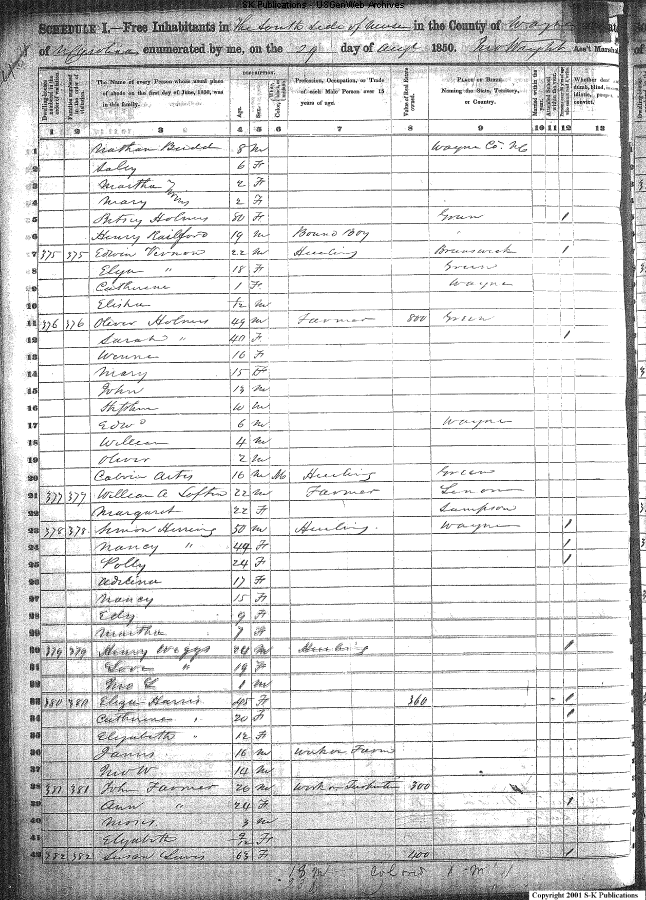 S-K Publications - USGenWeb Archives
SCHEDULE I.—Free Inhabitants in the South Side of Neuse in the County of Wayne State
of N Carolina enumerated by me, on the 29 day of Augt 1850. Jno Wright Ass't Marshal
DESCRIPTION.
Dwelling-houses numbered in the order of visitation. Families numbered in the order of visitation. The Name of every Person whose usual place of abode on the first day of June, 1850, was in this family. Age. Sex. Color Profession, Occupation, or Trade of each Male Person over 15 years of age. Value of Real Estate owned. PLACE OF BIRTH. Naming the State, Territory, or Country. Married within the year. Attended School within the year. Whether deaf and dumb, blind, insane, idiotic, pauper, or convict.
1 2 3 4 5 6 7 8 9 10 11 12 13
1 Nathan Budd 8 M Wayne Co. NC
2 6 F
3 Martha 2 F
4 Mary 2 F
5 Betsey Holmes 80 F Green 1
6 Henry Railford 19 M Bound Boy "
7 375 375 Edwin Vernon 22 M Brunswick 1
8 " 18 F Green
9 Catherine 1 F Wayne
10 Elisha M
11 376 376 Oliver Holmes 49 M Farmer 800 Green
12 Sarah " 40 F 1
13 16 F
14 Mary 15 F
15 John 13 M
16 M
17 Edwd 6 M Wayne
18 William 4 M
19 Oliver 2 M
20 Calvin Artis 16 M M Green
21 377 377 William A Loftin 22 M Farmer Lenoir
22 Margaret 22 F Sampson
23 378 378 Simon Herring 50 M Wayne 1
24 Nancy " 44 F 1
25 Polly 24 F 1
26 17 F
27 Nancy 15 F
28 Edy 9 F
29 Martha 7 F
30 379 379 Henry Wiggs 24 M 1
31 Love " 19 F
32 Jno L 1 M
33 380 380 Eliza Harris 45 F 360 1
34 Catherine " 20 F 1
35 Elizabeth " 12 F
36 16 M Work on Farm
37 Jno W 14 M
38 381 381 John Farmer 26 M 300
39 Ann " 24 F 1
40 3 M
41 Elizabeth F
42 382 382 Susan 63 F 400 1
13 M
Copyright 2001 S-K Publications